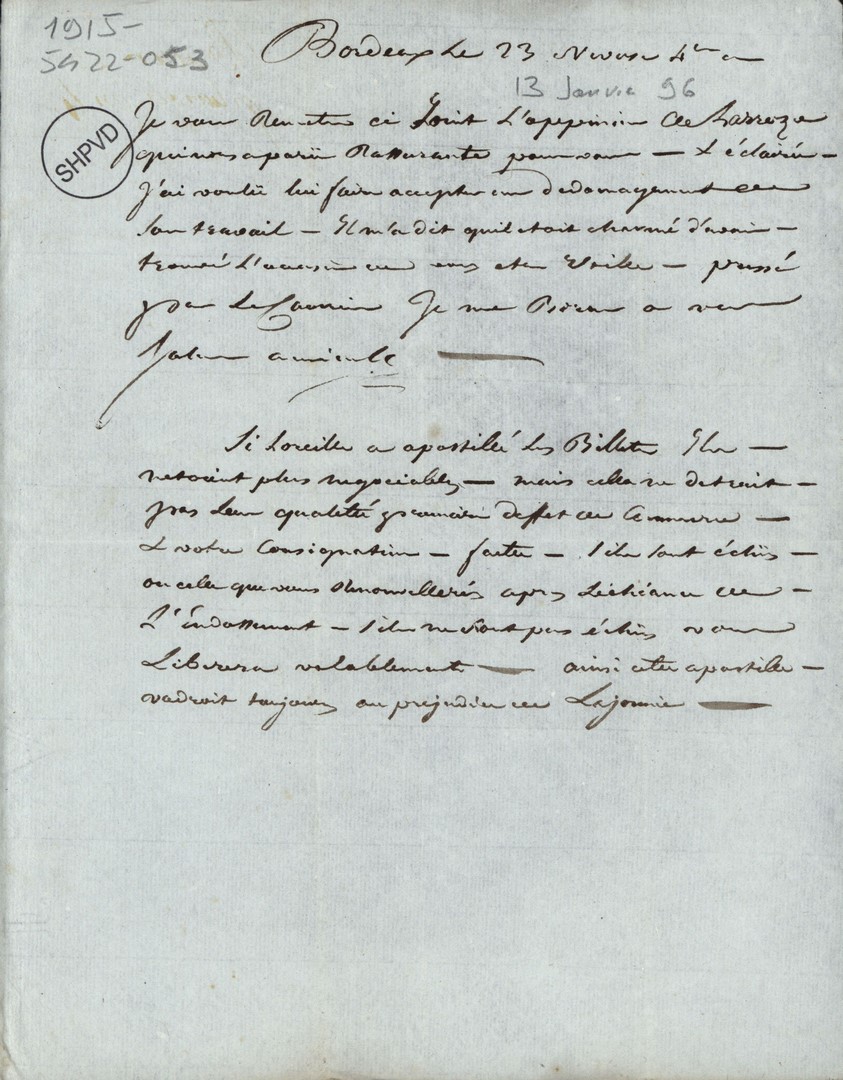 1915-
5422-053
Bordeaux Le 23 Nivose 4em a
13 Janvier 96
SHPVD
Je vous Remetts ci Joint L'oppinion de Larroze
qui m'a parü Rassurante pour vous — & éclairée —
J'ai voulü lui faire accepter un dedomagement de
Son travail — Il m'a dit quil etoit charmé d'avoir —
trouvé L'occasion de vous etre Utille — pressé
par Le Courrier Je me Borne a vous
Saluer amicale
Si Loreille a apostillé Les Billets Ils —
netoient plus negociables — mais cella ne detruit —
pas Leur qualitté d'effet de Commerce —
& votre Consignation — faitte — S'ils sont échüs —
ou celle que vous Renouvellerés apres L'échéance de —
L'éndossement — S'ils ne sont pas échüs vous
Liberera valablement — ainsi cette apostille —
vadroit toujours au prejudice de Lajonnie —